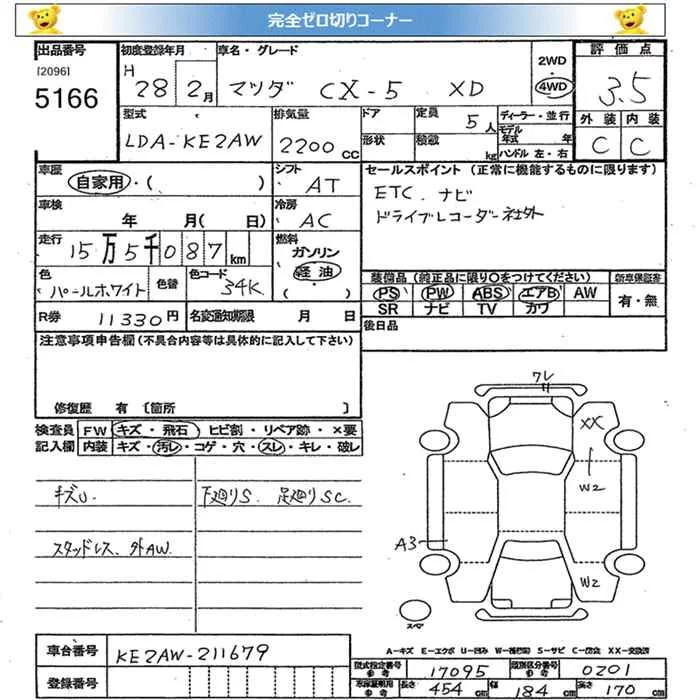 完全ゼロ切りコーナー
出品番号 初度登録年月 車名・グレード 2WD 評価点
[2096] H
5166 28 2月 マツダ CX-5 XD 4WD 3.5
型式 排気量 ドア 定員 ディーラー・並行 外装 内装
5人 モデル年式 年
LDA-KE2AW 2200cc 形状 積載 kg ハンドル 左・右 C C
車歴 シフト セールスポイント(正常に機能するものに限ります)
自家用・( ) AT ETC.ナビ
車検 冷房 ドライブレコーダー社外
年 月( 日) AC
走行 燃料
15万5千087km ガソリン
色 色替 色コード 軽油 装備品(純正品に限り○をつけてください) 新車保証書
パールホワイト 34K ( ) PS PW ABS エアB AW 有・無
R券 11330円 名変通知期限 月 日 SR ナビ TV カワ
注意事項申告欄(不具合内容等は具体的に記入して下さい) 後日品
修復歴 有〔箇所 〕
検査員 FW キズ・飛石・ヒビ割・リペア跡・×要
記入欄 内装 キズ・汚レ・コゲ・穴・スレ・キレ・破レ
ワレ
XX
キズU. 下廻りS. 足廻りSC.
W2
スタッドレス、外AW.
A3
W2
スペア
A-キズ E-エクボ U-凹み W-補修跡 S-サビ C-腐食 XX-交換済
車台番号 KE2AW-211679
型式指定番号 参考 17095 類別区分番号 参考 0201
登録番号
参考 長さ 454cm 幅 184cm 高さ 170cm